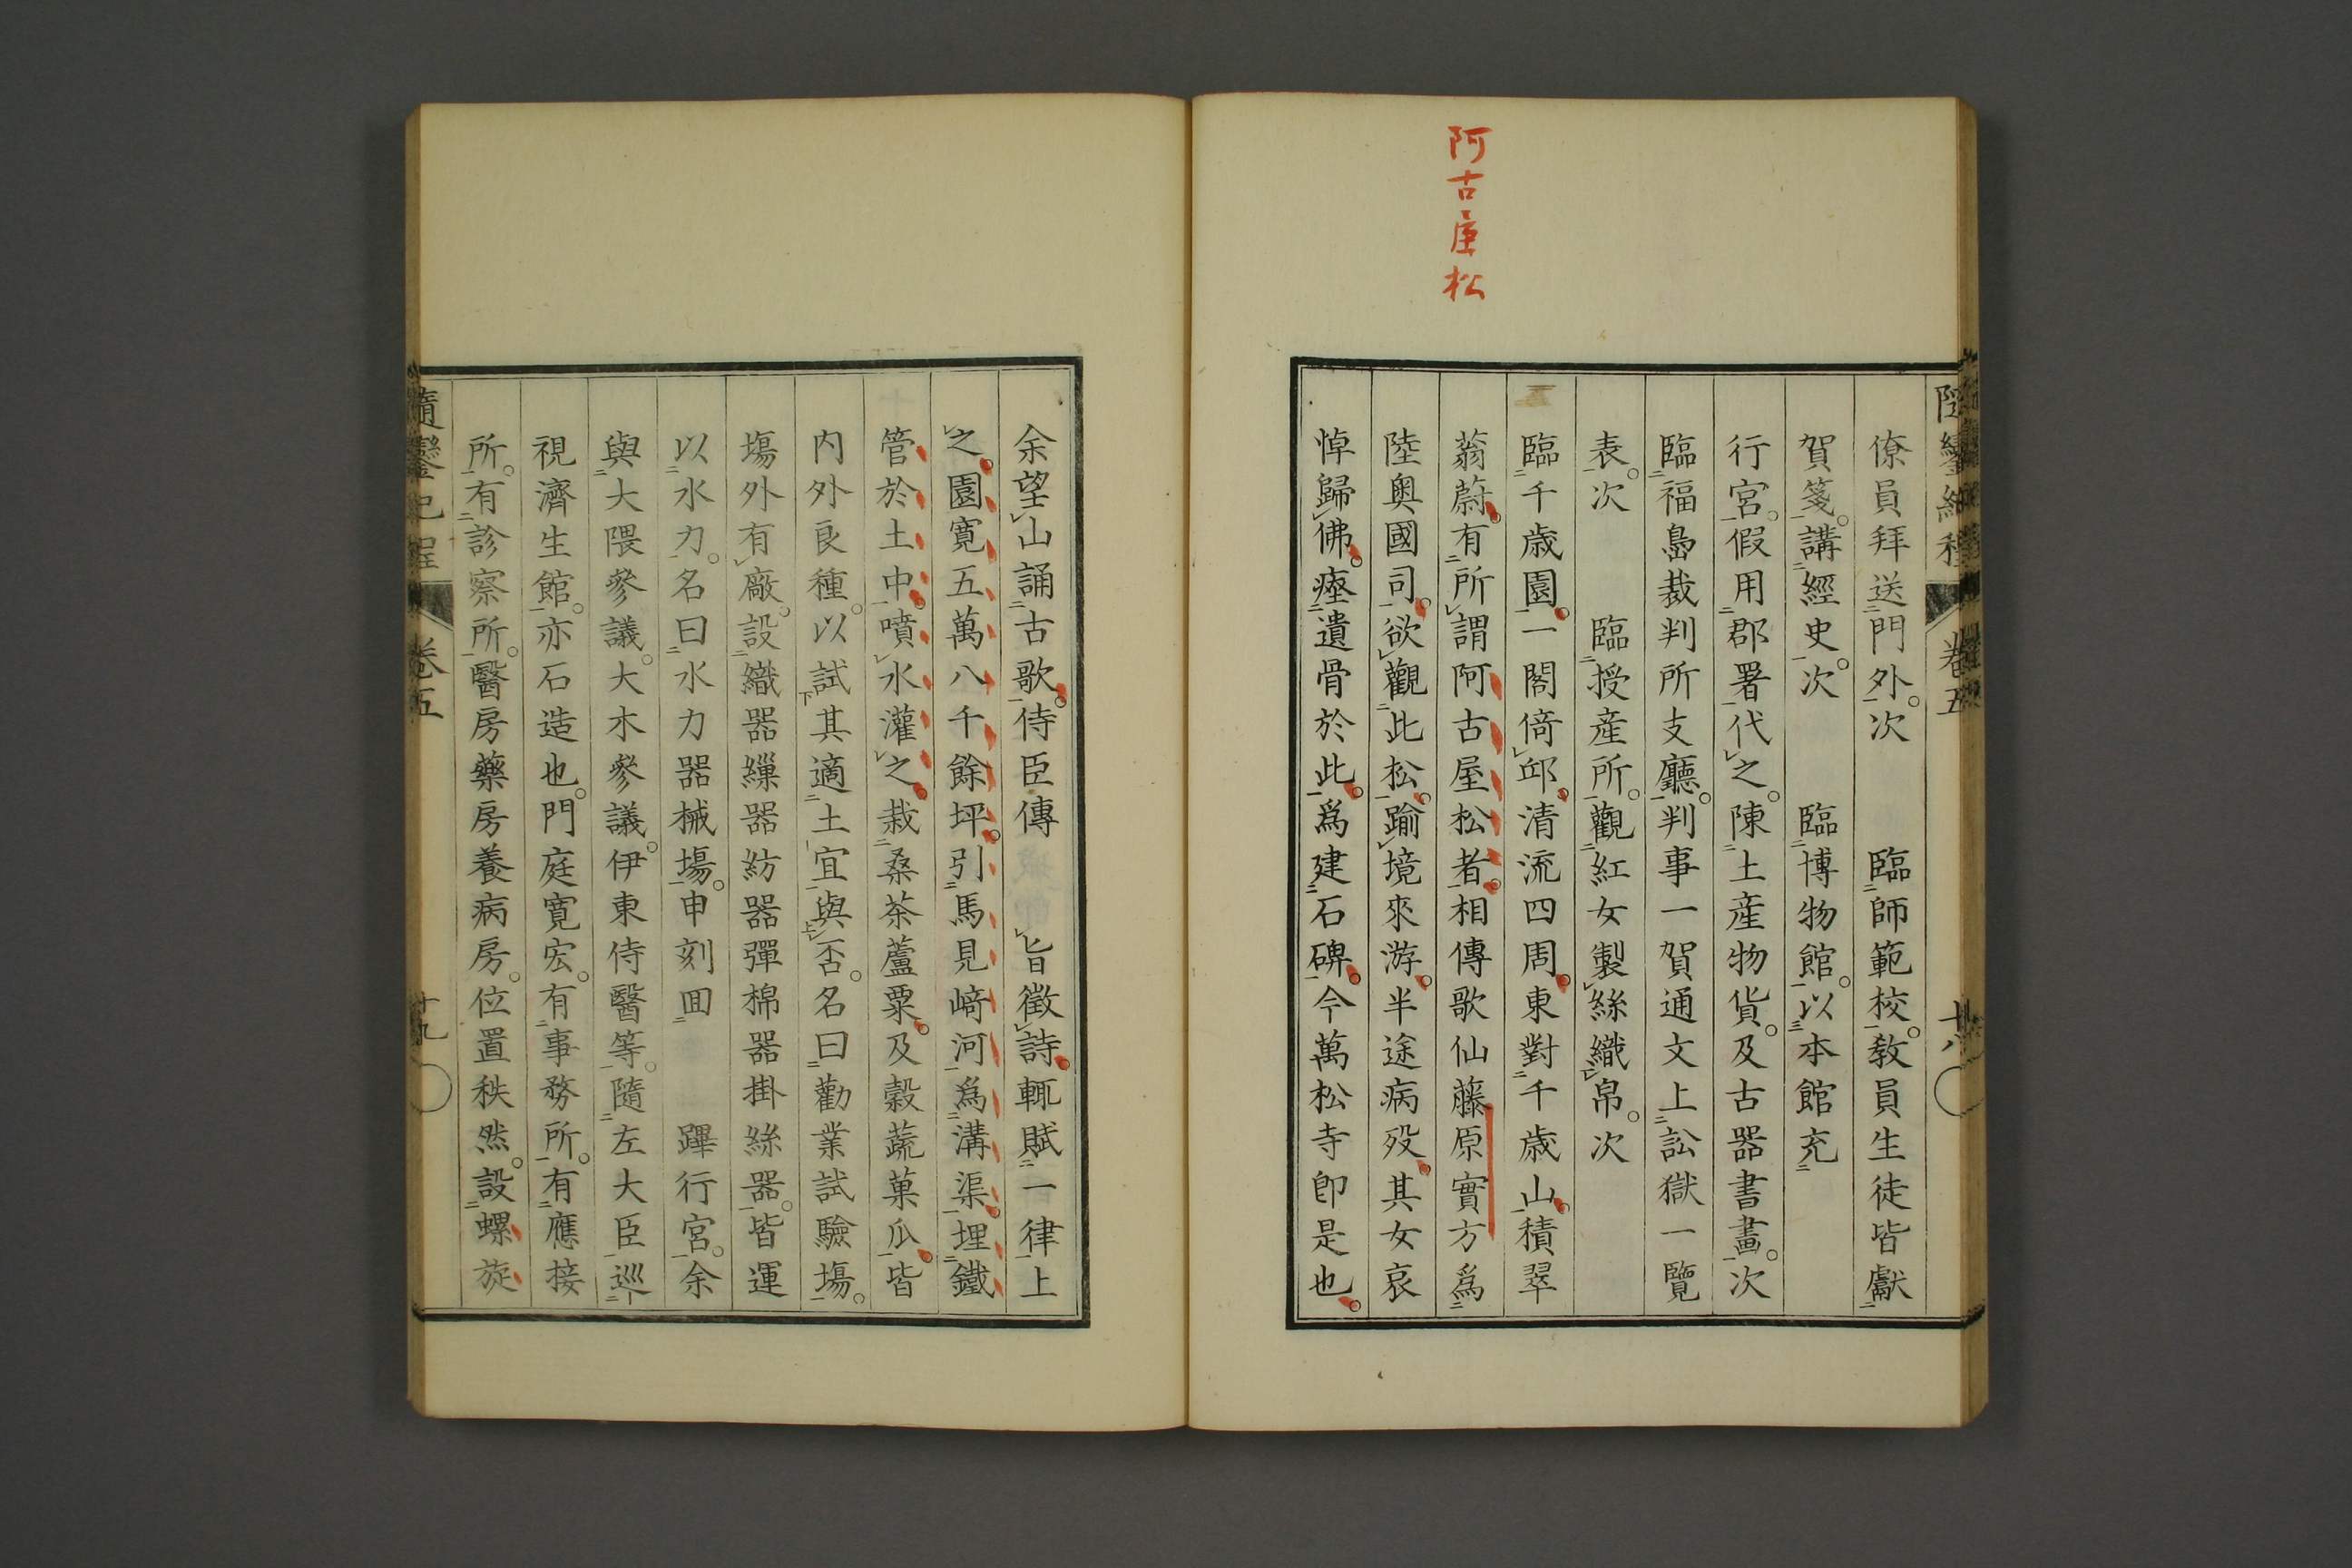 阿古屋松
僚員拜送門外。次　臨師範校。敎員生徒皆獻
賀箋。講經史。次　臨博物館。以本館充
行宮。假用郡署代之。陳土産物貨。及古器書畫。次
臨福島裁判所支廳。判事一賀通文上訟獄一覽
表。次　臨授産所。觀紅女製絲織帛。次
臨千歳園。一閣倚邱。清流四周。東對千歳山。積翠
蓊蔚。有所謂阿古屋松者。相傳歌仙藤原實方爲
陸奧國司。欲觀此松。踰境來游。半途病歿。其女哀
悼歸佛。瘞遺骨於此。爲建石碑。今萬松寺卽是也。
卷五
十八
余望山誦古歌。侍臣傳　旨徵詩。輒賦一律上
之。園寬五萬八千餘坪。引馬見﨑河爲溝渠。埋鐵
管於土中。噴水灌之。栽桑茶蘆粟。及穀蔬菓瓜。皆
内外良種。以試其適土宜與否。名曰勸業試驗場。
場外有廠。設織器繅器紡器彈棉器掛絲器。皆運
以水力。名曰水力器械場。申刻囬　蹕行宮。余
與大隈參議。大木參議。伊東侍醫等。隨左大臣巡
視濟生館。亦石造也。門庭寬宏。有事務所。有應接
所。有診察所。醫房藥房養病房。位置秩然。設螺旋
隨鑾紀程
卷五
十九